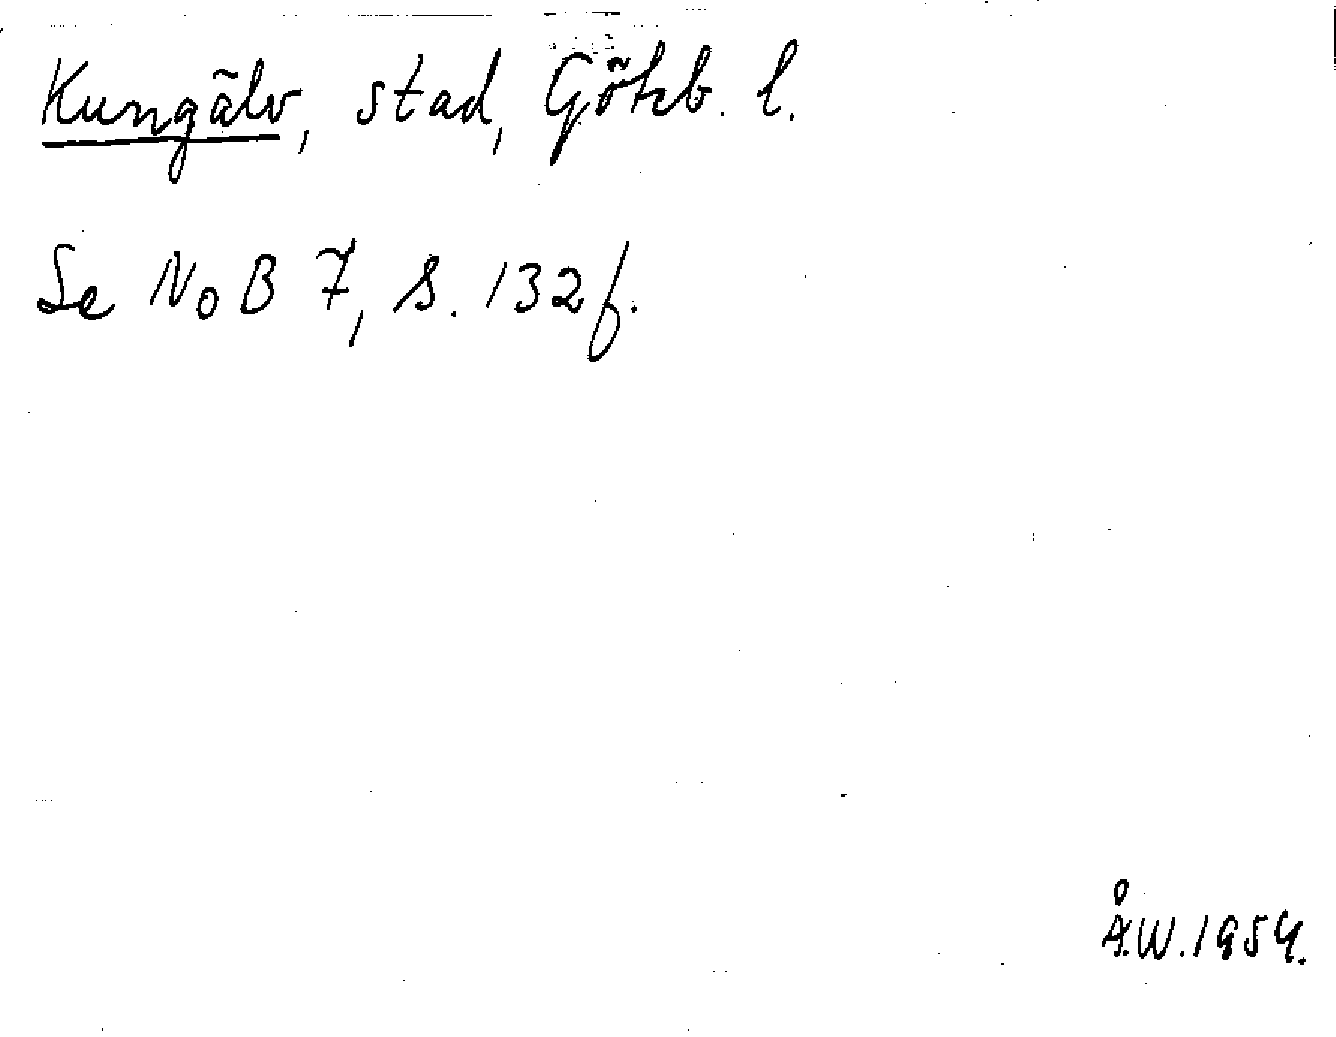 Kungälv, stad, Göteb. l.
Se NoB 7, s. 132 f.
Å.W. 1954.